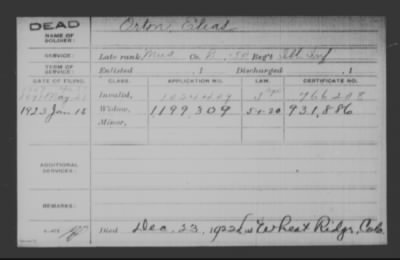 DEAD
NAME OF SOLDIER: Orton, Elias
SERVICE: Late rank, Mus Co. B, Reg't Ill Inf
TERM OF SERVICE: Enlisted , 1 Discharged , 1
DATE OF FILING. CLASS. APPLICATION NO. LAW. CERTIFICATE NO.
Invalid, 766208
1923 Jan 15 Widow, 1199,309 5-1-20 931,886
Minor,
ADDITIONAL SERVICES:
REMARKS:
Died Dec. 23, 1922, at Wheat Ridge, Colo.